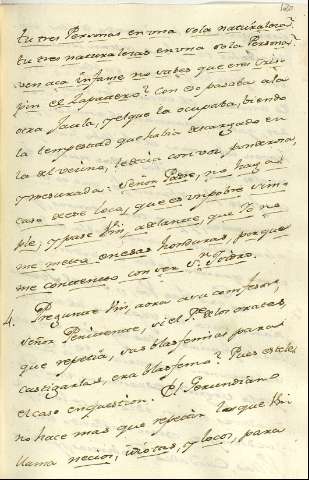 tu tres Personas en una sola naturaleza?
tu tres naturalezas en una sola Persona?
ven aca infame no sabes que eres Cris
pin el Zapatero? Con eso pasaba a la
otra Jaula, y el que la ocupaba, viendo
la tempestad que habia descargado en
la del vecino, le decia con voz ponderosa,
y mesurada: Señor Padre, no haga
caso de ese loco, que es un pobre sim
ple; y pase Vm adelante, que Yo no
me meto en esas honduras, porque
me contento con ser Sn. Isidro.
4. Pregunte Vm, aora a su confesor,
señor Penitente, si el Pe. de los orates,
que repetia, sus blasfemias para
castigarlas, era blasfemo? Pues este es
el caso en question. El Gerundiano
no hace mas que repetir lo que Vm
llama necios, idiotas, y locos, para